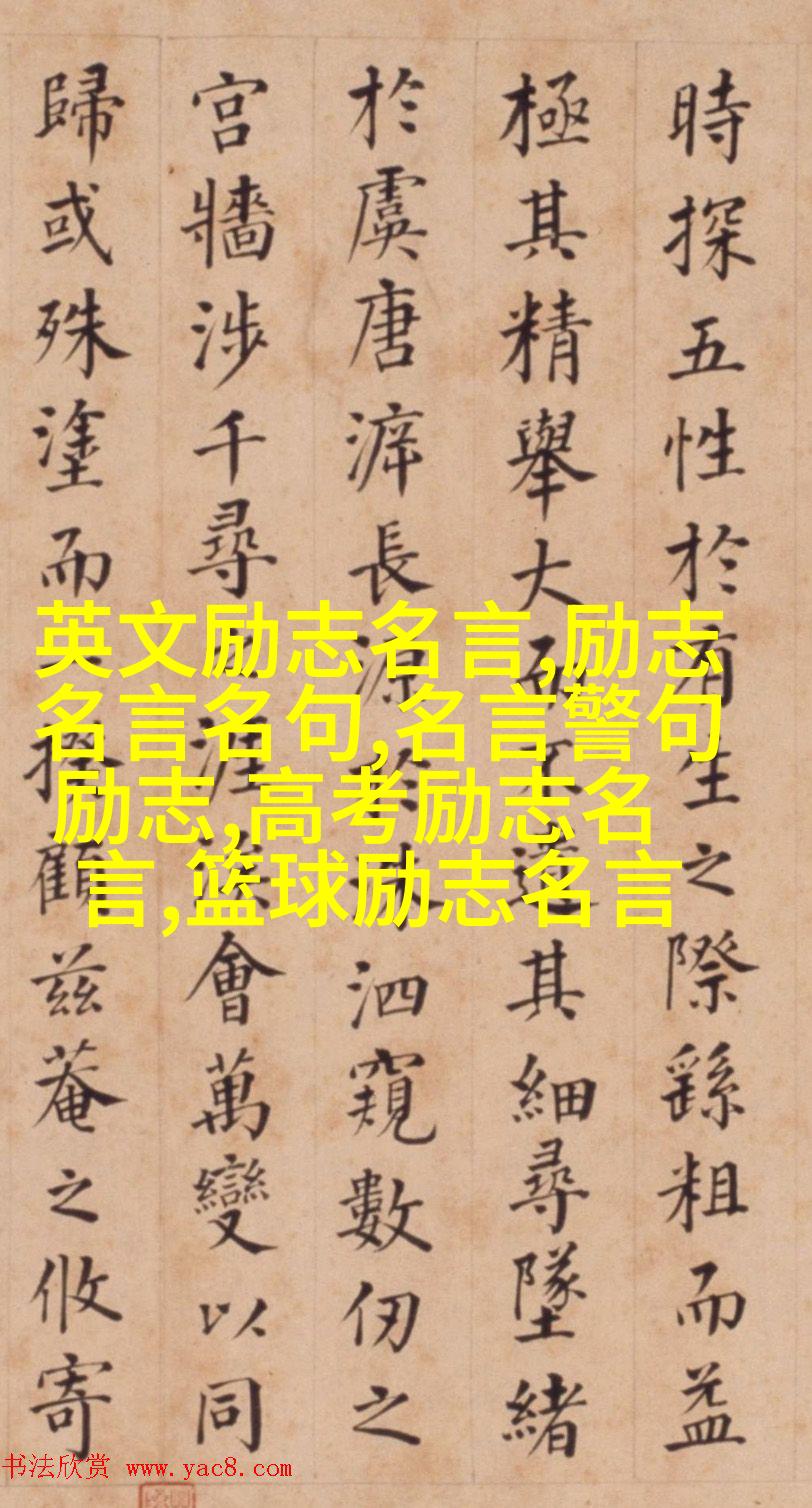 時探五性於有生之際繇粗而益
極其精舉大而不遺其細尋墜緒
於虞唐長源於洙泗窺數仞之
宮牆涉千尋涯涘會萬變以同
歸或殊塗而揆顧兹菴之攸寄
英文励志名言,励志
名言名句,名言警句
励志,高考励志名
言,篮球励志名言
书法欣赏 www.yac8.com